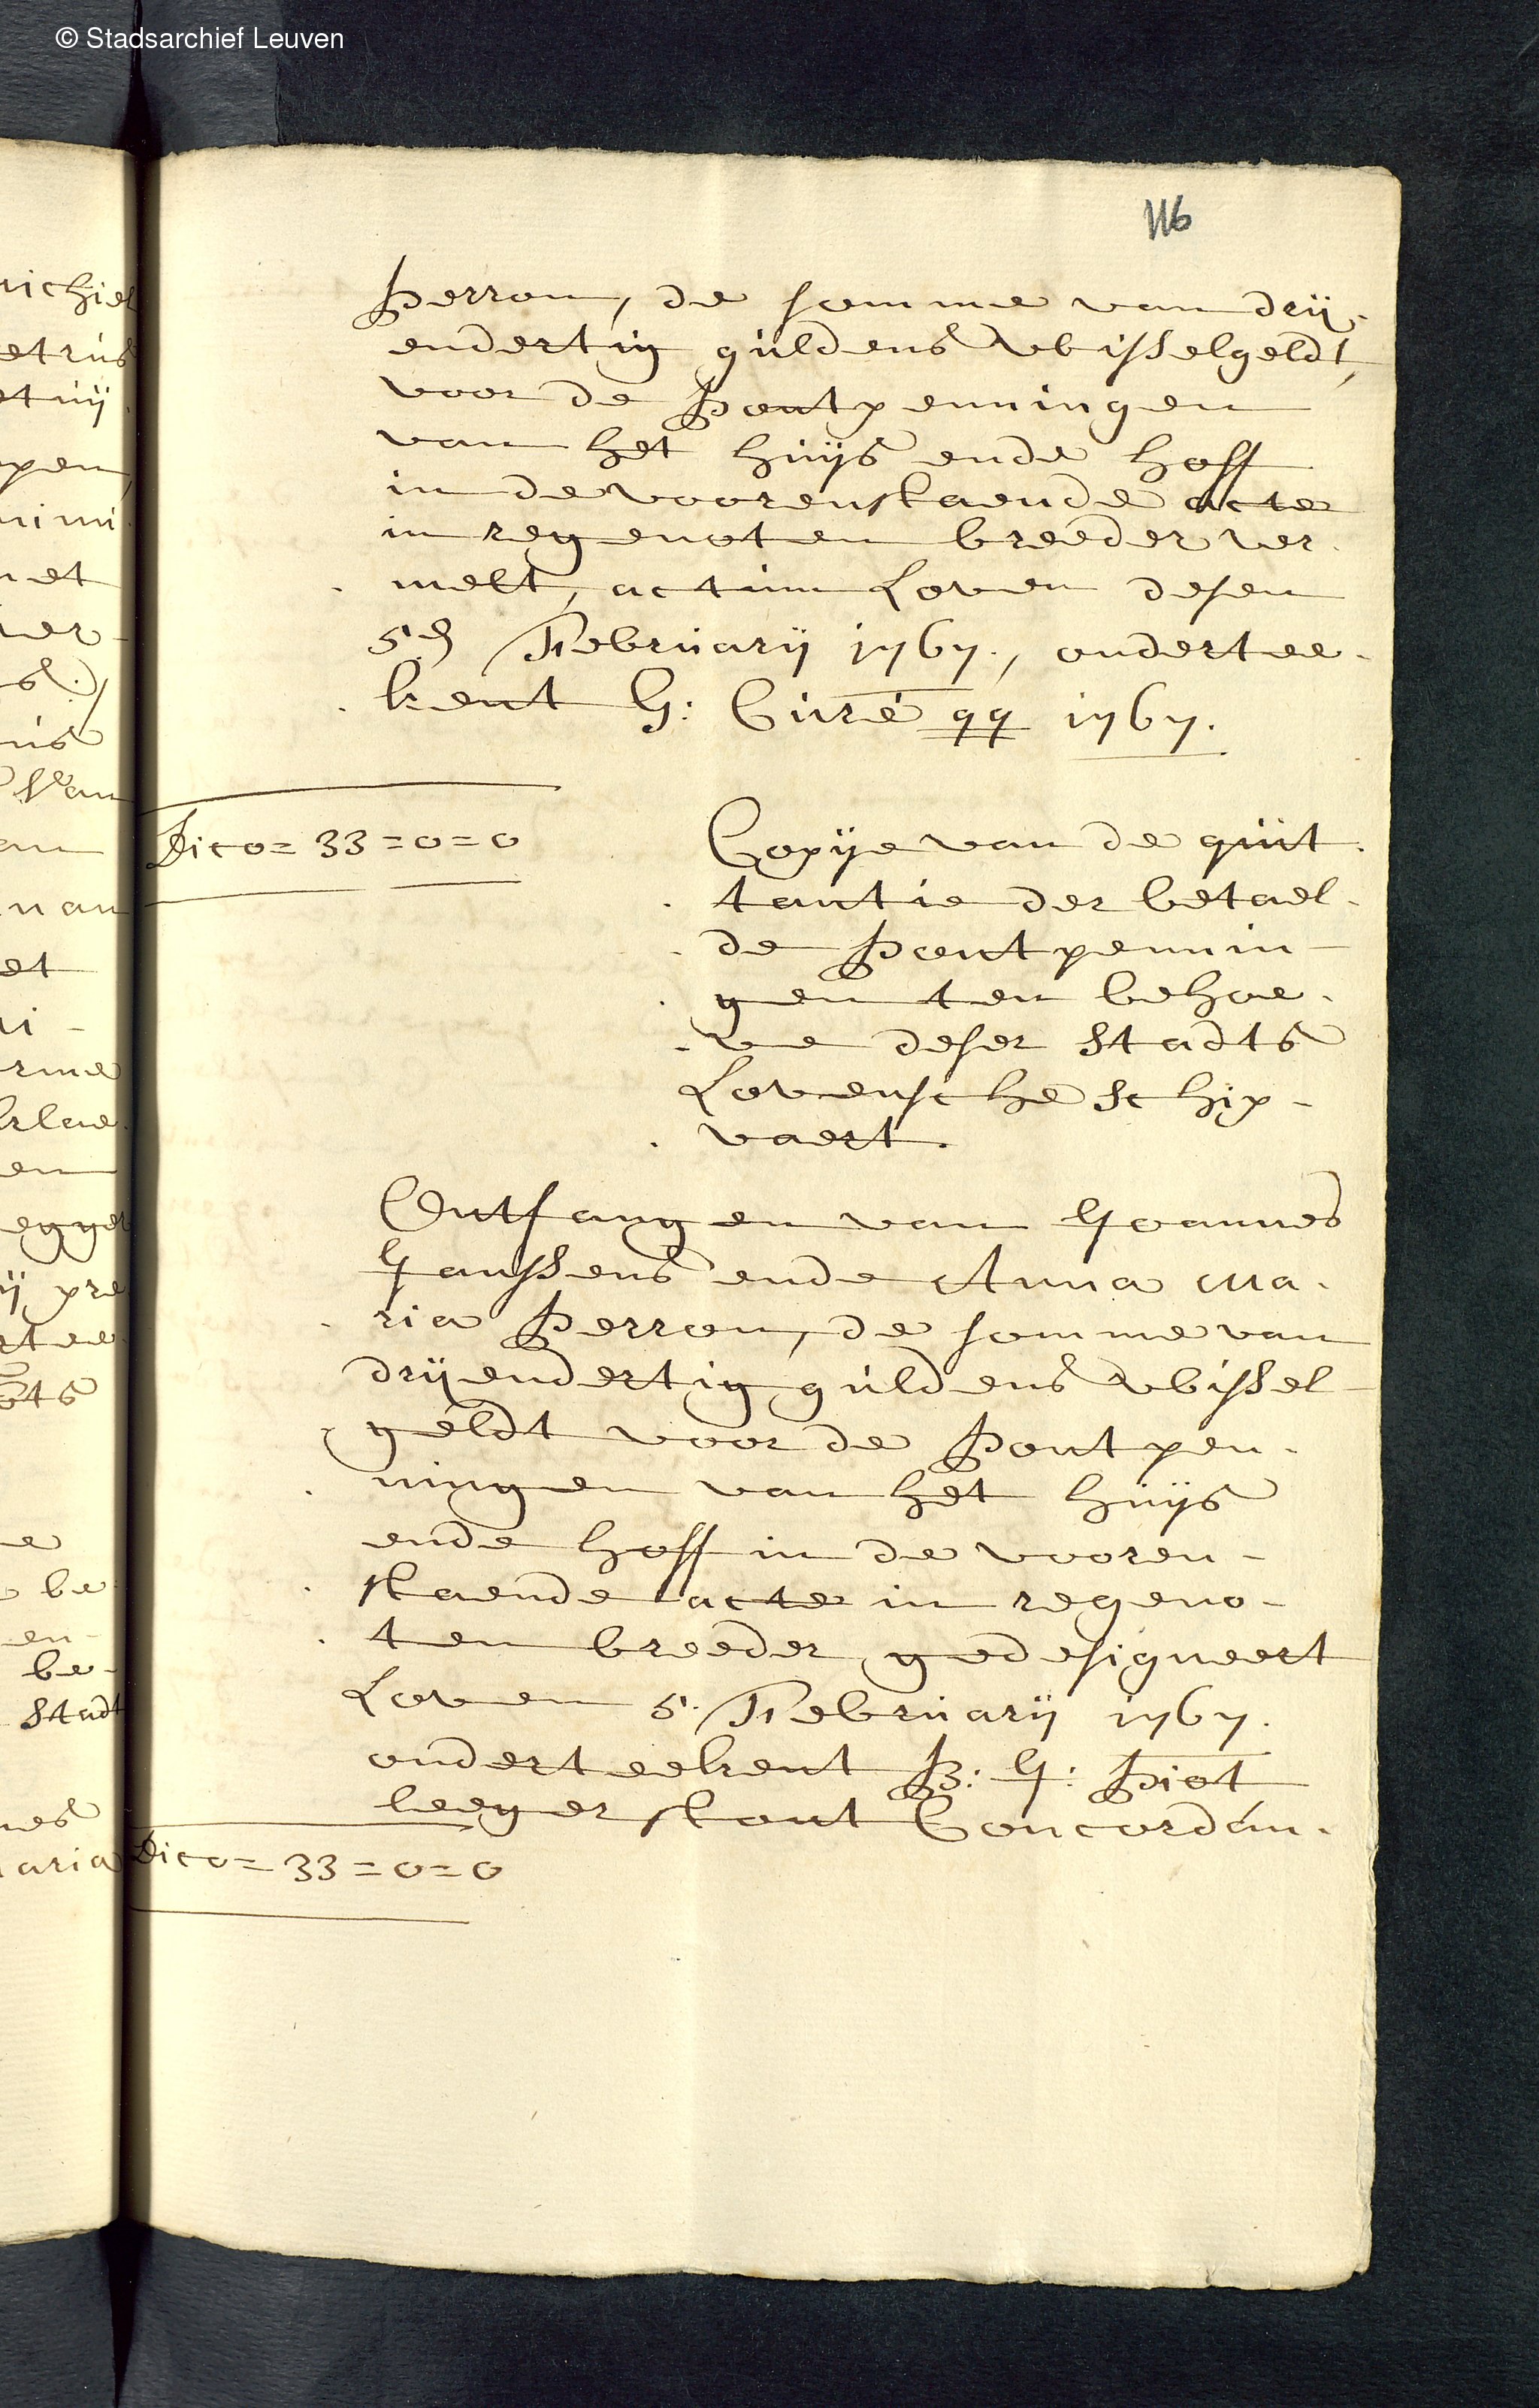 © Stadsarchief Leuven
116
Perron, de somme van drij-
endertig guldens wbisselgeldt,
voor de Pontpenningen
van het huijs ende hoff
in de voorenstaende acte
in regenoten breeder ver-
melt, actum Loven desen
5e February 1767., ondertee-
kent G: Curé qq 1767.
Dico = 33 = 0 = 0
Copije van de quit-
tantie der betael-
de Pontpennin-
gen ten behoe-
ve deser Stadts
Lovensche Schip-
vaert.
Ontfangen van Joannes
Janssens ende Anna Ma-
ria Perron, de somme van
drijendertig guldens wbissel-
geldt voor de Pontpen-
ningen van het huijs
ende hoff in de vooren-
staende acte in regeno-
ten breeder gedesigneert
Loven 5. February 1767.
onderteekent P: J: Piot
leeger stont Concordan-
Dico = 33 = 0 = 0